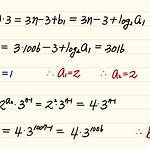 )·3 = 3n-3+b₁ = 3n-3+log₂a₁
= 3·1006-3+log₂a₁ = 3016
=1 ∴ a₁=2 ∴ aₙ=2
2^{aₙ}·3^{n-1} = 2²·3^{n-1} = 4·3^{n-1}
= 4·3^{1007-1} = 4·3^{1006} ∴